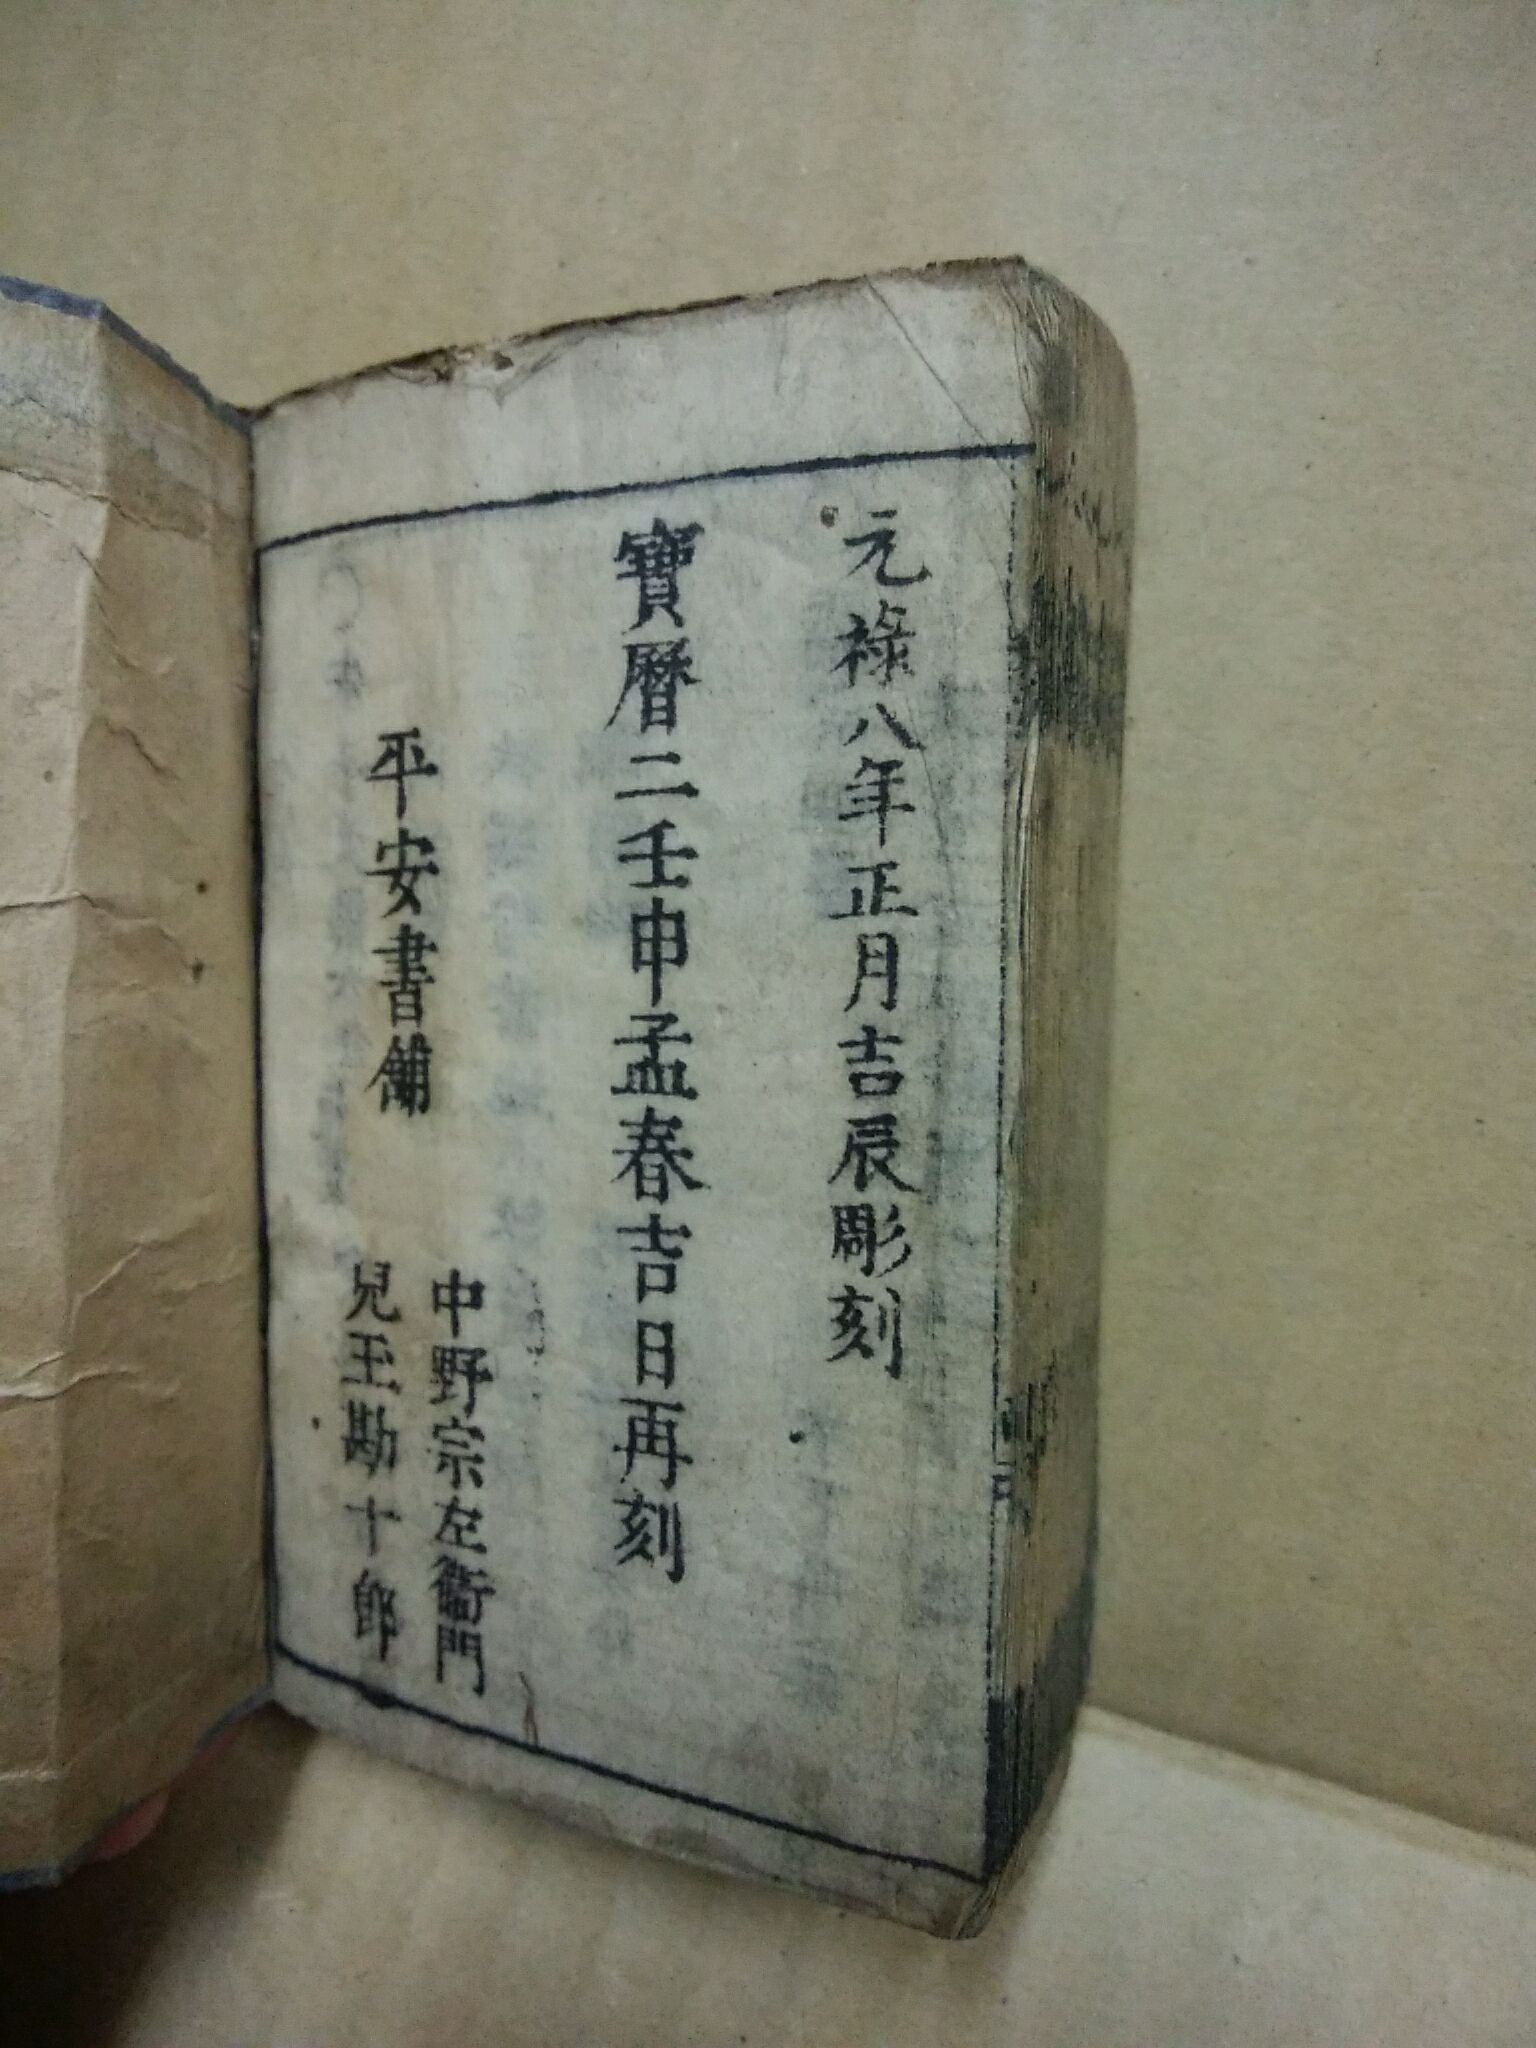 元祿八年正月吉辰彫刻
寶曆二壬申孟春吉日再刻
平安書舖
中野宗左衞門
兒玉勘十郎